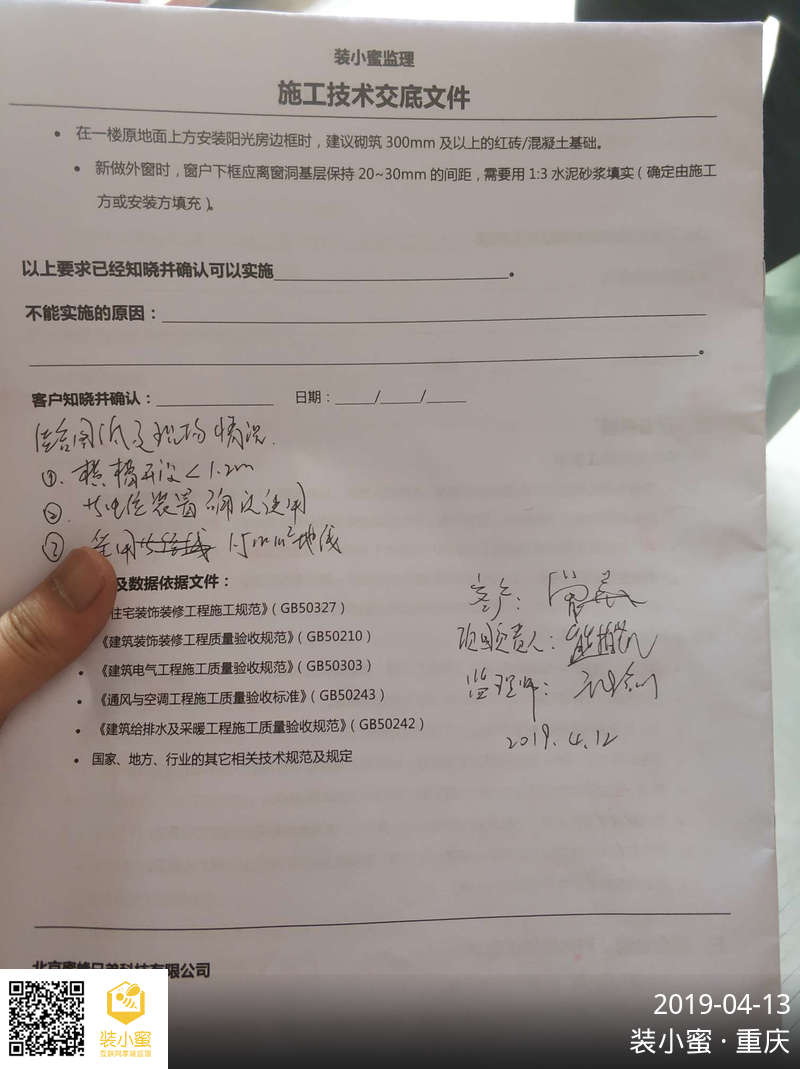 装小蜜监理
施工技术交底文件
• 在一楼原地面上方安装阳光房边框时，建议砌筑300mm及以上的红砖/混凝土基础。
• 新做外窗时，窗户下框应离窗洞基层保持20~30mm的间距，需要用1:3水泥砂浆填实（确定由施工
方或安装方填充）。
以上要求已经知晓并确认可以实施____。
不能实施的原因：____
____。
客户知晓并确认：____ 日期：____/____/____
结合图纸及现场情况.
①. 横槽开设<1.2m
②. 等电位装置确认使用
③ 1.5mm²地线
及数据依据文件：
住宅装饰装修工程施工规范》（GB50327）
《建筑装饰装修工程质量验收规范》（GB50210）
• 《建筑电气工程施工质量验收规范》（GB50303）
• 《通风与空调工程施工质量验收标准》（GB50243）
• 《建筑给排水及采暖工程施工质量验收规范》（GB50242）
• 国家、地方、行业的其它相关技术规范及规定
客户：
项目负责人：
监理师：
2019.4.12
北京蜜蜂兄弟科技有限公司
装小蜜
互联网家装监理
2019-04-13
装小蜜·重庆